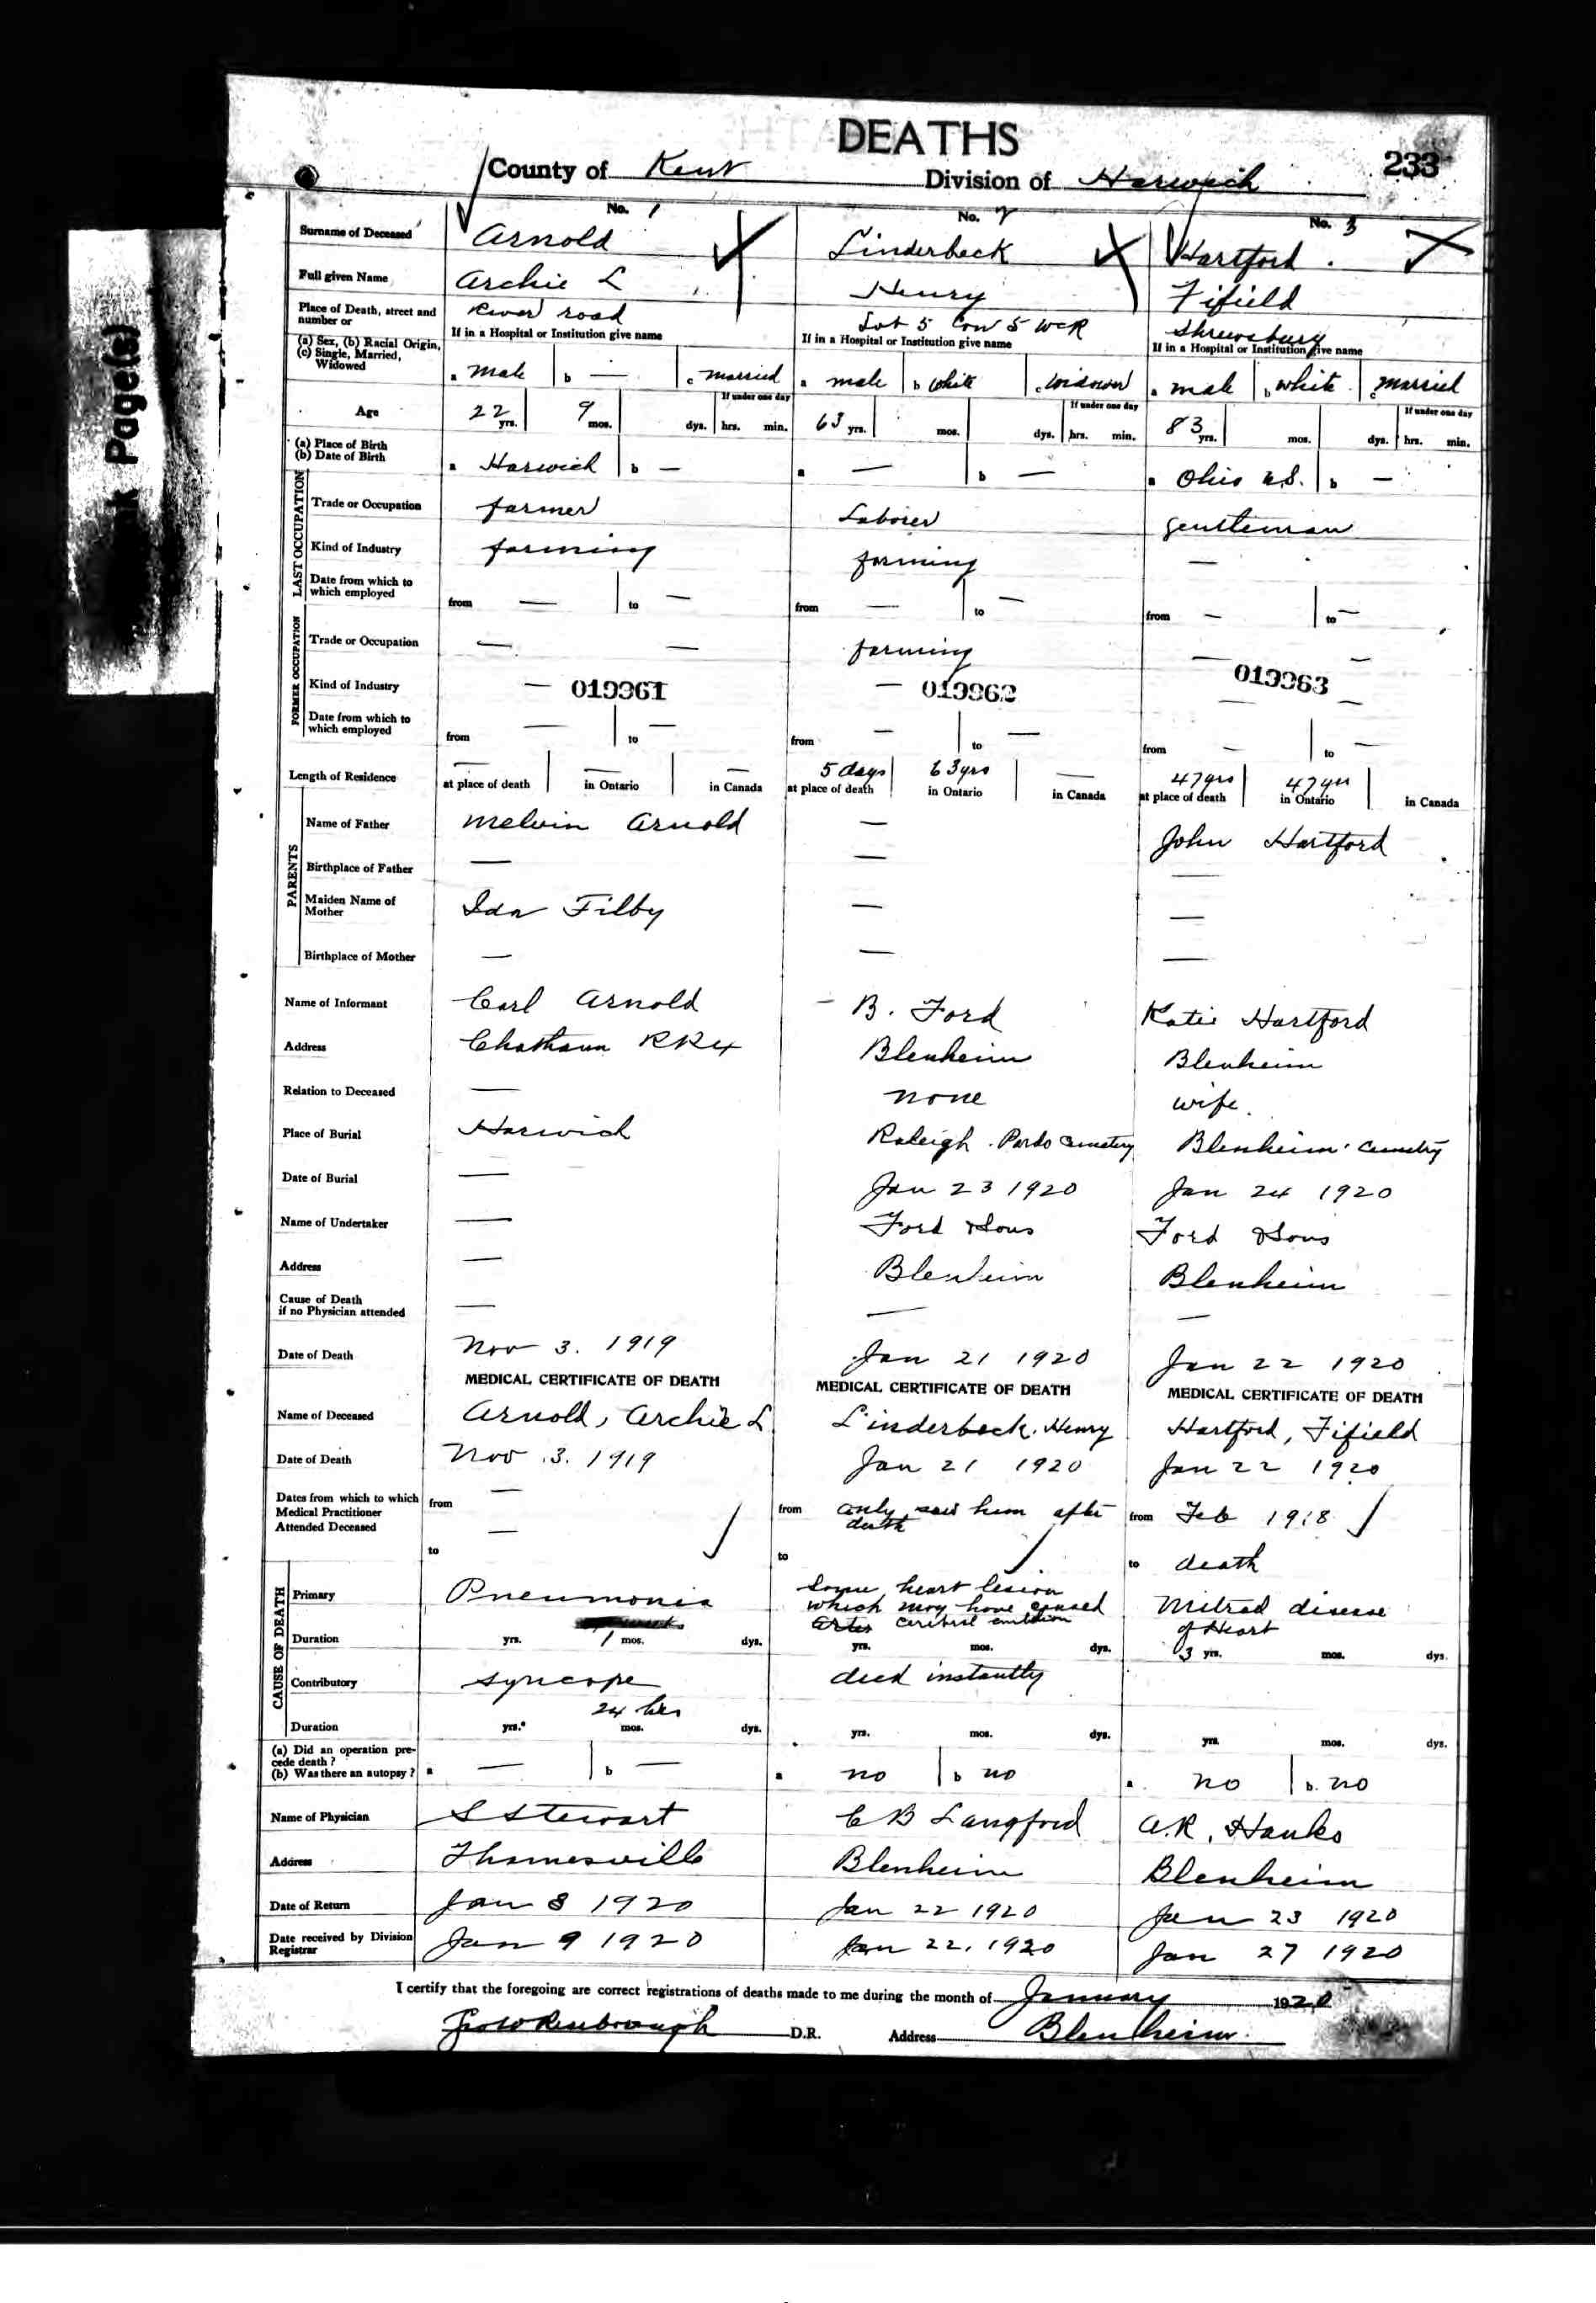 DEATHS
233
County of Kent Division of Harwich
No. 1 No. 2 No. 3
Surname of Deceased Arnold Linderbeck Hartford.
Full given Name Archie L Henry Fifield
Place of Death, street and number or River road Lot 5 Con 5 WCR Shrewsbury
If in a Hospital or Institution give name If in a Hospital or Institution give name If in a Hospital or Institution give name
(a) Sex, (b) Racial Origin, (c) Single, Married, Widowed a male b — c married a male b white c widower a male b white c married
Age 22 yrs. 9 mos. dys. If under one day hrs. min. 63 yrs. mos. dys. If under one day hrs. min. 83 yrs. mos. dys. If under one day hrs. min.
(a) Place of Birth (b) Date of Birth a Harwich b — a — b — a Ohio U.S. b —
LAST OCCUPATION
Trade or Occupation farmer Laborer gentleman
Kind of Industry farming farming —
Date from which to which employed from — to — from — to — from — to —
FORMER OCCUPATION
Trade or Occupation — — farming — —
Kind of Industry — 019961 — 019962 019963 — —
Date from which to which employed from — to — from — to — from — to —
Length of Residence — at place of death — in Ontario — in Canada 5 days at place of death 63 yrs in Ontario — in Canada 47 yrs at place of death 47 yrs in Ontario in Canada
PARENTS
Name of Father Melvin Arnold — John Hartford
Birthplace of Father — — —
Maiden Name of Mother Ida Filby — —
Birthplace of Mother — — —
Name of Informant Carl Arnold – B. Ford Katie Hartford
Address Chatham RR4 Blenheim Blenheim
Relation to Deceased — none wife.
Place of Burial Harwich Raleigh. Pardo Cemetery Blenheim Cemetry
Date of Burial — Jan 23 1920 Jan 24 1920
Name of Undertaker — Ford & Sons Ford & Sons
Address — Blenheim Blenheim
Cause of Death if no Physician attended — — —
Date of Death Nov 3. 1919 Jan 21 1920 Jan 22 1920
MEDICAL CERTIFICATE OF DEATH MEDICAL CERTIFICATE OF DEATH MEDICAL CERTIFICATE OF DEATH
Name of Deceased Arnold, Archie L Linderbeck. Henry Hartford, Fifield
Date of Death Nov. 3. 1919 Jan 21 1920 Jan 22 1920
Dates from which to which Medical Practitioner Attended Deceased from — to — from only saw him after death to from Feb 1918 to death
CAUSE OF DEATH
Primary Pneumonia Some heart lesion which may have caused cerebral embolism Mitral disease of Heart
Duration yrs. 1 mos. dys. yrs. mos. dys. 3 yrs. mos. dys.
Contributory syncope died instantly
24 hrs
Duration yrs. mos. dys. yrs. mos. dys. yrs. mos. dys.
(a) Did an operation precede death? (b) Was there an autopsy? a — b — a no b no a. no b. no
Name of Physician S Stewart C B Langford A. R. Hanks
Address Thamesville Blenheim Blenheim
Date of Return Jan 8 1920 Jan 22 1920 Jan 23 1920
Date received by Division Registrar Jan 9 1920 Jan 22, 1920 Jan 27 1920
I certify that the foregoing are correct registrations of deaths made to me during the month of January 1920
D.R. Address Blenheim.
Page(s)